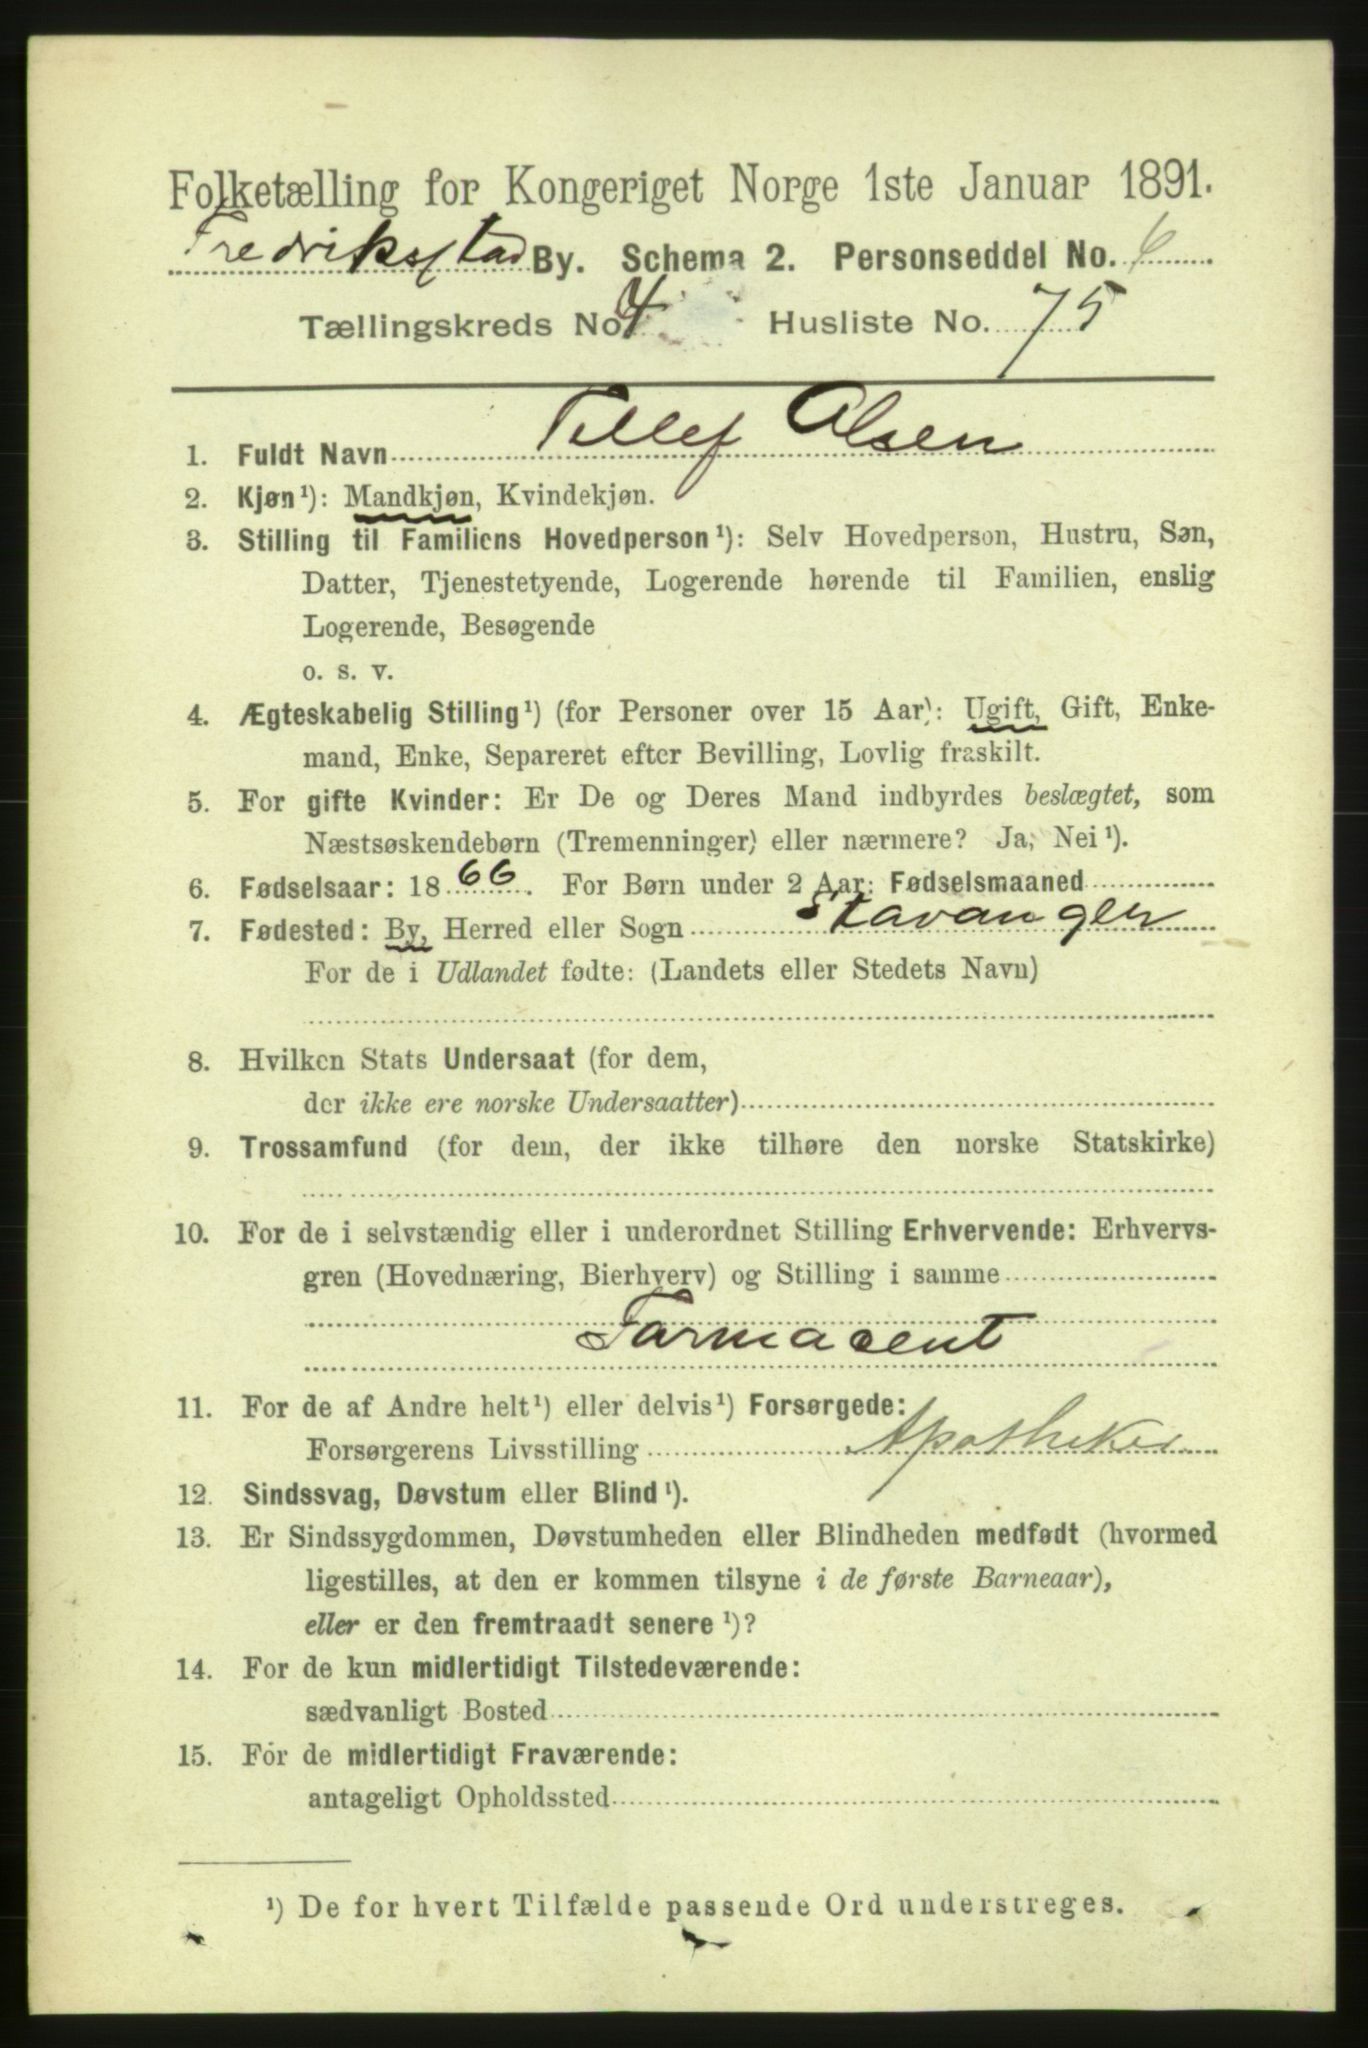 Folketælling for Kongeriget Norge 1ste Januar 1891.
Fredrikstad By. Schema 2. Personseddel No. 6
Tællingskreds No. 4 Husliste No. 75
1. Fuldt Navn Tellef Olsen
2. Kjøn¹): Mandkjøn, Kvindekjøn.
3. Stilling til Familiens Hovedperson¹): Selv Hovedperson, Hustru, Søn,
Datter, Tjenestetyende, Logerende hørende til Familien, enslig
Logerende, Besøgende
o. s. v.
4. Ægteskabelig Stilling¹) (for Personer over 15 Aar): Ugift, Gift, Enke-
mand, Enke, Separeret efter Bevilling, Lovlig fraskilt.
5. For gifte Kvinder: Er De og Deres Mand indbyrdes beslægtet, som
Næstsøskendebørn (Tremenninger) eller nærmere? Ja, Nei¹).
6. Fødselsaar: 1866. For Børn under 2 Aar: Fødselsmaaned
7. Fødested: By, Herred eller Sogn Stavanger
For de i Udlandet fødte: (Landets eller Stedets Navn)
8. Hvilken Stats Undersaat (for dem,
der ikke ere norske Undersaatter)
9. Trossamfund (for dem, der ikke tilhøre den norske Statskirke)
10. For de i selvstændig eller i underordnet Stilling Erhvervende: Erhvervs-
gren (Hovednæring, Bierhverv) og Stilling i samme
Farmacent
11. For de af Andre helt¹) eller delvis¹) Forsørgede:
Forsørgerens Livsstilling Apotheker
12. Sindssvag, Døvstum eller Blind¹).
13. Er Sindssygdommen, Døvstumheden eller Blindheden medfødt (hvormed
ligestilles, at den er kommen tilsyne i de første Barneaar),
eller er den fremtraadt senere¹)?
14. For de kun midlertidigt Tilstedeværende:
sædvanligt Bosted
15. For de midlertidigt Fraværende:
antageligt Opholdssted
¹) De for hvert Tilfælde passende Ord understreges.